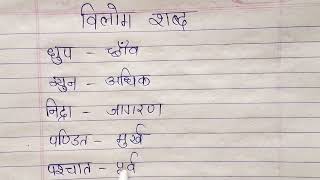 विलोम शब्द
धुप - छाँव
न्युन - अधिक
निद्रा - जागरण
पण्डित - मुर्ख
पश्चात - पूर्व